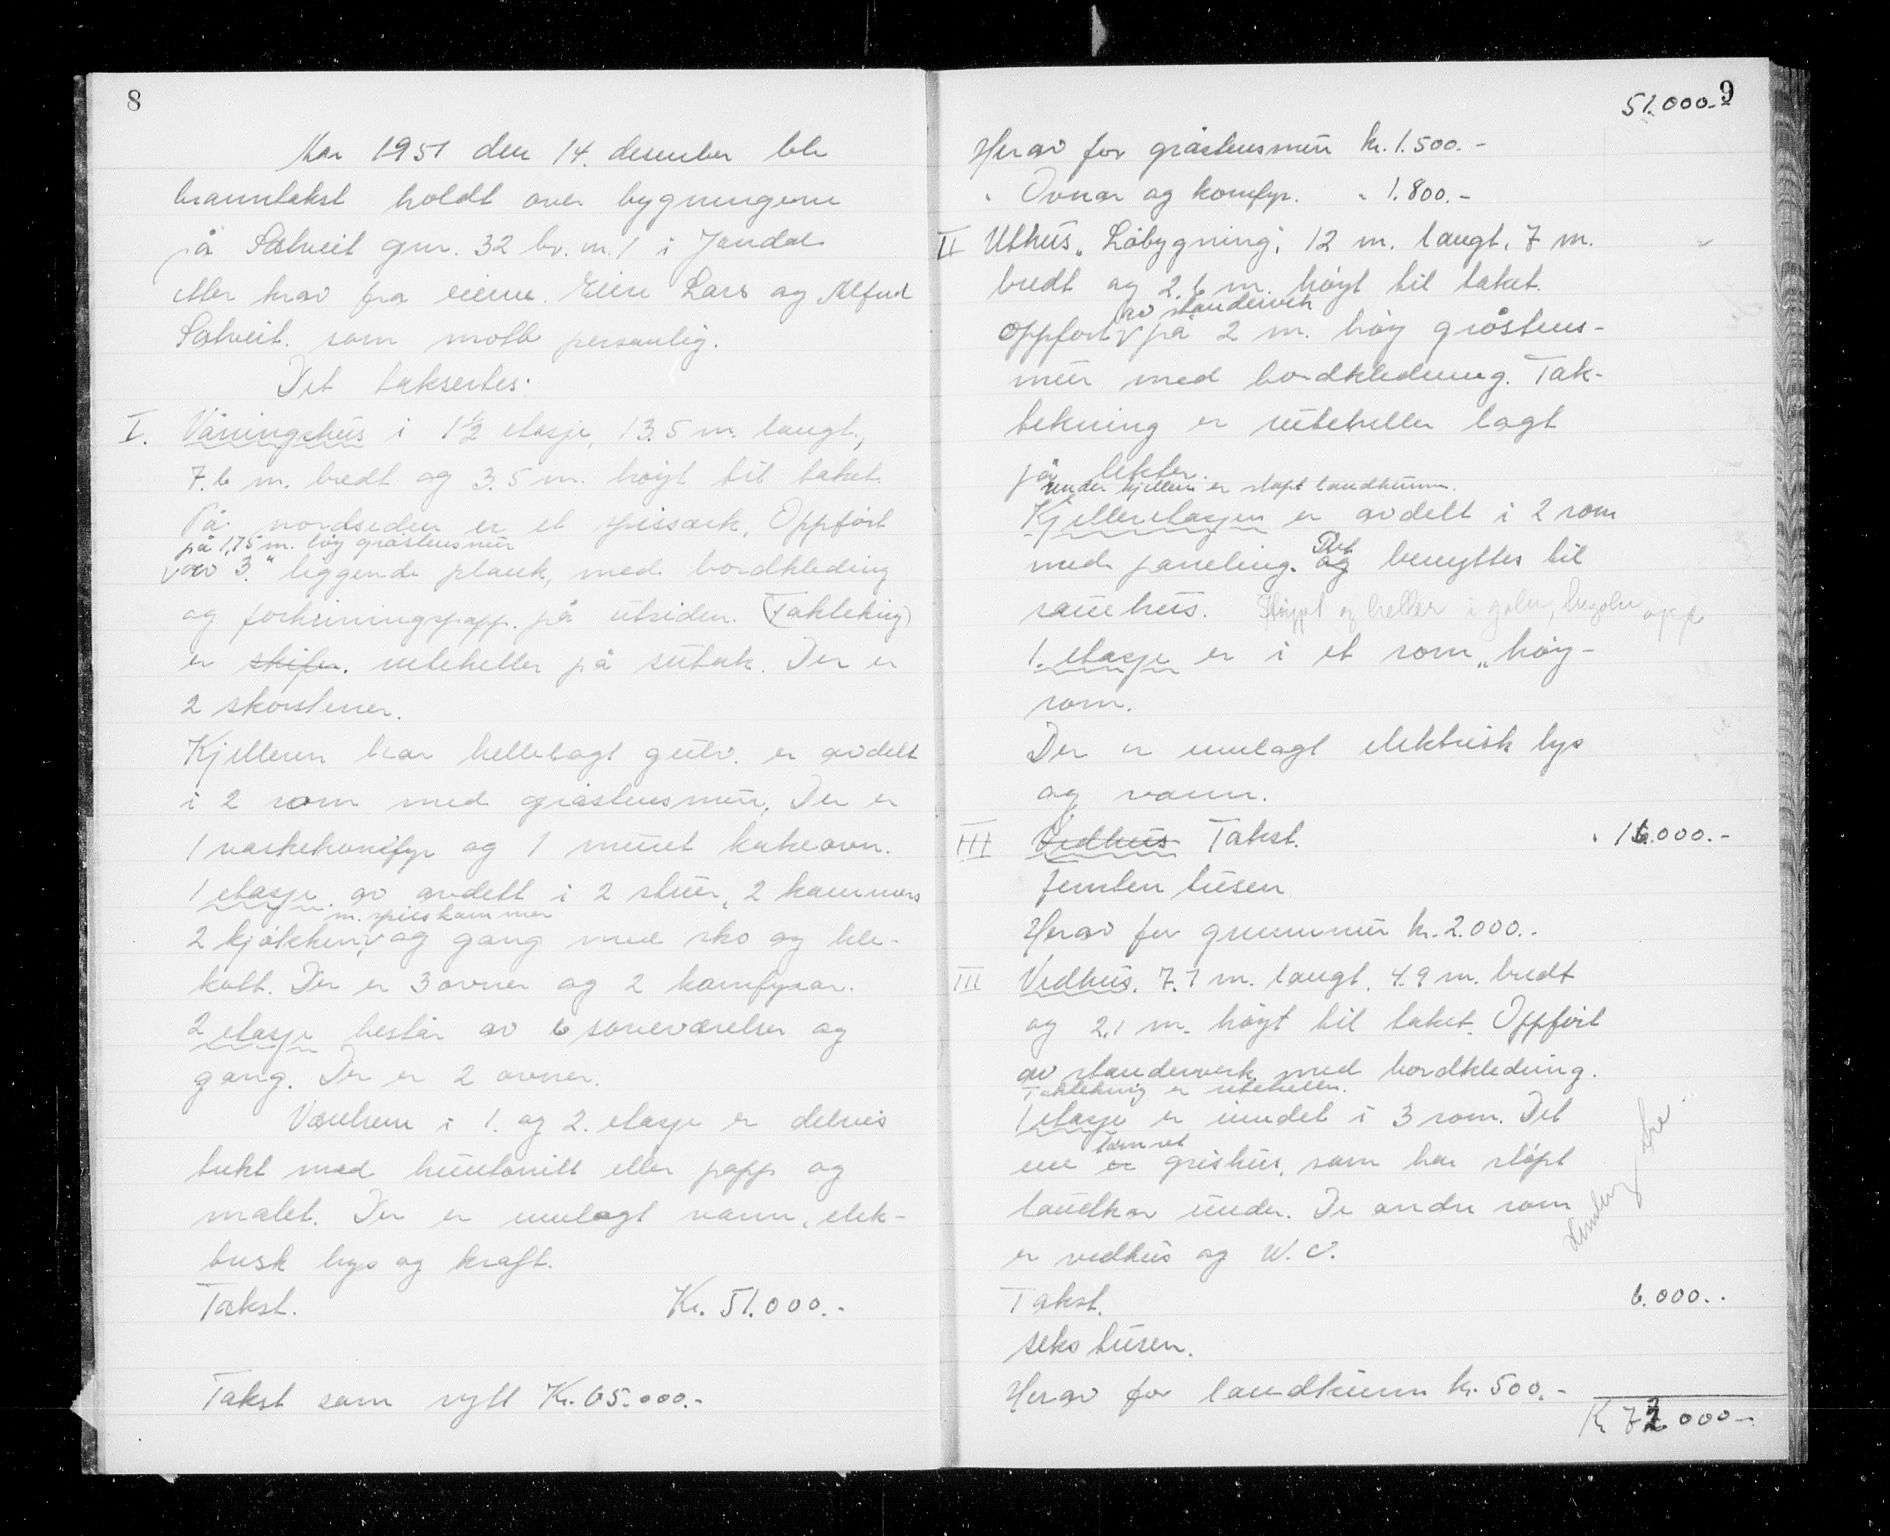 8
Aar 1951 den 14. desember ble
branntakst holdt over bygningene
på Solveit gnr. 32 br. nr. 1 i Jondal
etter krav fra eierne. Eiere Lars og Alfred
Solveit. som møtte personlig.
Det taksertes:
I. Våningshus i 1½ etasje, 13.5 m. langt,
7.6 m. bredt og 3.5 m. høyt til taket.
På nordsiden er et spissark, Oppført
på 1,75 m. høy gråstensmur
av 3" liggende plank, med bordkleding
og forhudningspapp. på utsiden. (Taktekning)
er skifer. ruteheller på sutak. Der er
2 skorstener.
Kjelleren har hellelagt gulv. er avdelt
i 2 rom med gråstensmur. Der er
1 vaskekomfyr og 1 muret kakeovn.
1 etasje. av avdelt i 2 stuer, 2 kammers
m. spiskammer
2 kjøkken, og gang med sko og kle-
kott. Der er 3 ovner og 2 komfyrar.
2 etasje består av 6 soveværelser og
gang. Der er 2 ovner.
Værelsene i 1. og 2. etasje er delvis
trukt med huntonitt eller papp og
malet. Der er innlagt vann, elek-
trisk lys og kraft.
Takst. Kr. 51.000.-
Takst som nytt Kr. 65.000.-
9
51.000.-
Herav for gråstensmur kr. 1.500.-
" Ovnar og komfyr. " 1.800.-
II Uthus. "Løbygning", 12 m. langt, 7 m.
bredt og 2.6 m. høyt til taket.
av standerverk
Oppført på 2 m. høy gråstens-
mur med bordkledning. Tak-
tekning er ruteheller lagt
på lekter.
Under kjelleren er støpt landkum.
Kjelleretasjen er avdelt i 2 rom
med paneling. og Det benyttes til
sauehus. Støypt og heller i golv, opp
1. etasje er i et rom "høy-
rom.
Der er innlagt elektrisk lys
og vann.
III Vedhus Takst. " 16.000.-
femten tusen
Herav for grunnmur kr. 2.000.-
III Vedhus. 7.7 m. langt, 4.9 m. bredt
og 2,1 m. høyt til taket. Oppført
av standerverk med bordkledning.
Taktekning er ruteheller.
1 etasje er inndet i 3 rom. Det
ene er grishus, som har støpt
landkar under. De andre rom
er vedhus og W.C.
Takst. 6.000.-
seks tusen.
Herav for landkum kr. 500.-
Kr 72.000.-